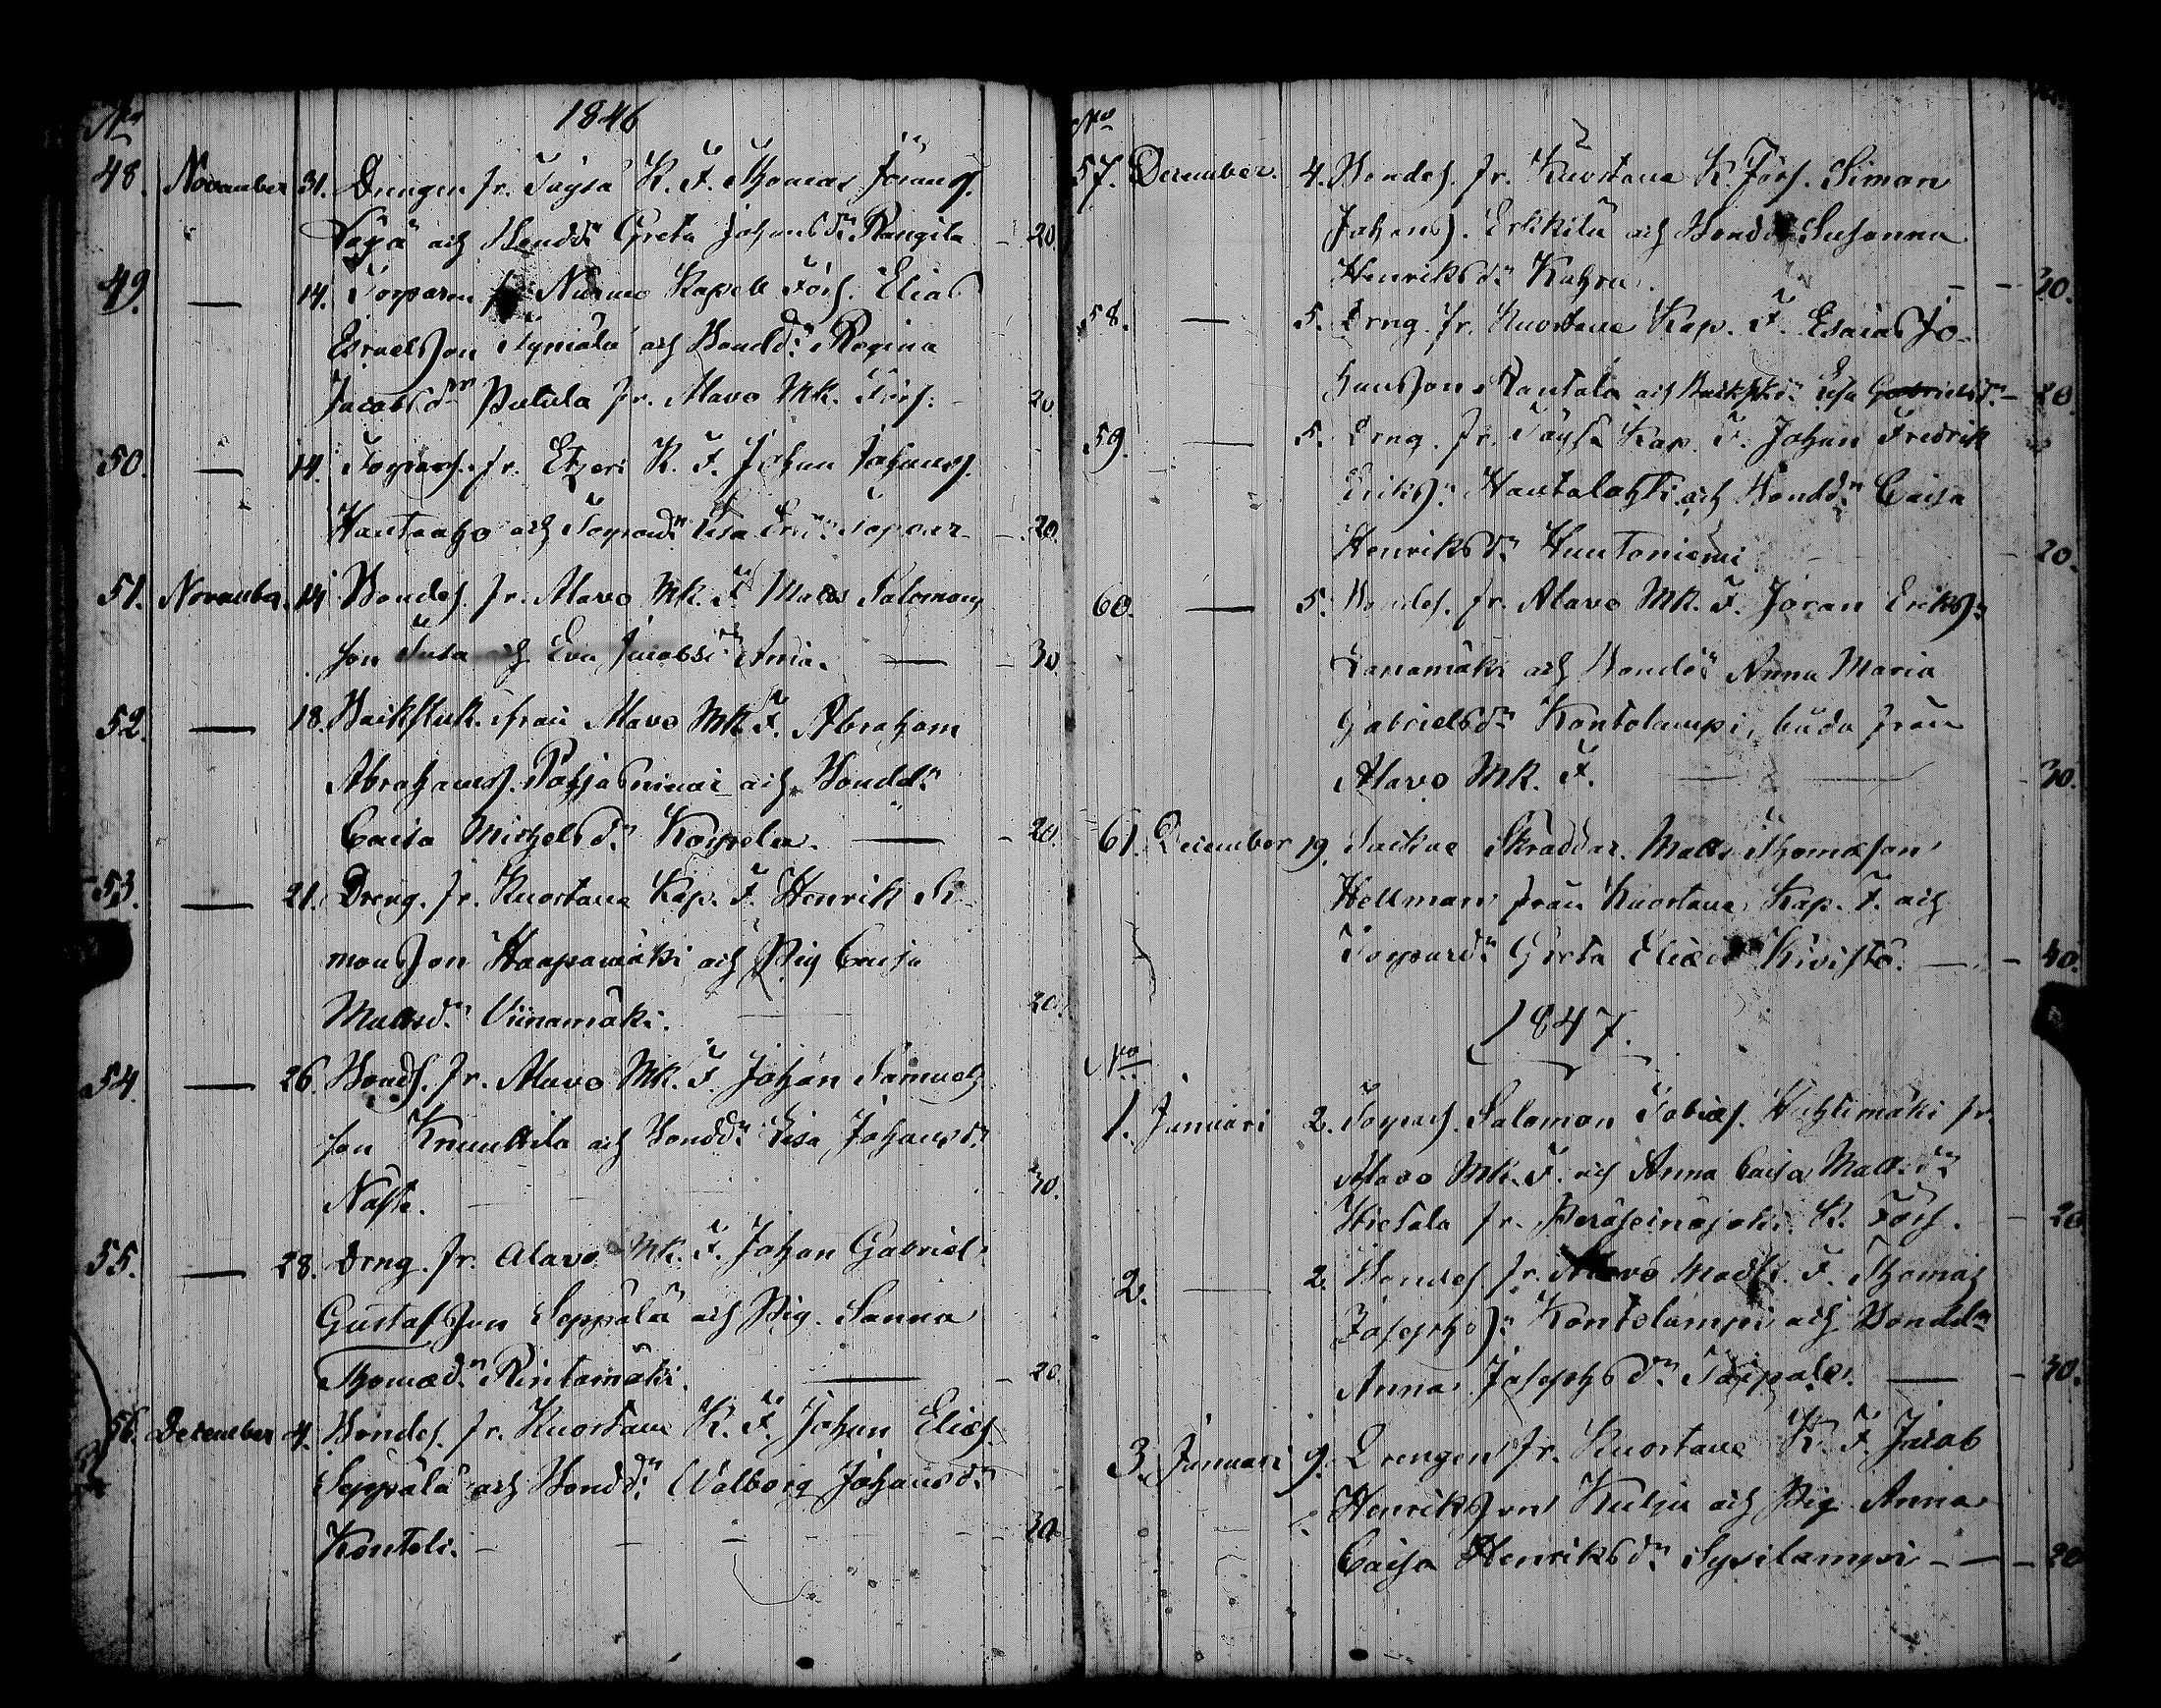 1846
No
48. November 31. Drengen fr. Töysä K. F. Thomas Jörans.
och Bondd:n Greta Johansd:n Rangila – 20.
49. — 14. Torparen fr. Nurmo Kapell Förs. Elias
Esraelsson och Bondd:n Regina
Jacobsd:n fr. Alavo MK. Förs: – 20
50. — 14. Torpars. fr. Etseri K. F. Johan Johans.
Hautaaho och Torpard:n Lisa – 20.
51. November 14 Bondes. fr. Alavo MK. F. Matts Salomons
son och Eva Jacobsd:n — – 30.
52. — 18. från Alavo MK. F. Abraham
Abrahams. och Bondd:n
Caisa Michelsd:n Koipela. — – 20.
53. — 21. Dreng. fr. Kuortane Kap. F. Henrik Si-
monsson Haapamäki och Pig Caisa
Mattsd:n Viinamäki. 20.
54. — 26. Bonds. fr. Alavo MK. F. Johan Samuels
son Knuuttila och Bondd:n Lisa Johansd:n
Näste. 30.
55. — 28. Drng. fr. Alavo MK. F. Johan Gabriel
Gustafsson Seppälä och Pig. Sanna
Thomasd:n Rintamäki. — – 20
56. December 4. Bondes. fr. Kuortane K. F. Johan Elias.
Seppälä och Bondd:n Valborg Johansd:n
Kontoli. – – – – – 30
No
57. December. 4. Bondes. fr. Kuortane K. Förs. Simon
Johans). Erkkilä och Bondd:n Susanna
Henriksd:n Kahra. – – 30.
58. — 5. Drng. fr. Kuortane Kap. F. Esaias Jo-
hansson Rantala och Lisa Gabrielsd:n – 20.
59. — 5. Drng. fr. Töysä Kap. F. Johan Fredrik
Eriks):n Hautalahti och Bondd:n Caisa
Henriksd:n Huutoniemi – 20.
60. — 5. Bondes. fr. Alavo MK. F. Jöran Eriks):n
och Bondd:n Anna Maria
Gabrielsd:n Kontolampi, båda från
Alavo MK. F. — — – 30.
61. December 19. Skräddar. Matts Thomasson
Hellman från Kuortane Kap. F. och
Torpard:n Greta Eliasd:n Kivistö. — – 40.
1847.
No
1. Januari 2. Torpars. Salomon Tobias. Huhtimäki fr.
Alavo MK. F. och Anna Caisa Mattsd:n
Hietala fr. Peräseinäjoki K. Förs. – 20
2. — 2. Bondes. fr. Alavo Modk. F. Thomas
Josephs):n Kontolampi och Bondd:n
Anna Josephsd:n Taipale. — – 30.
3. Januari 9. Drengen fr. Kuortane K. F. Jacob
Henriksson Kulju och Pig Anna
Caisa Henriksd:n Sysilampi – — – 20